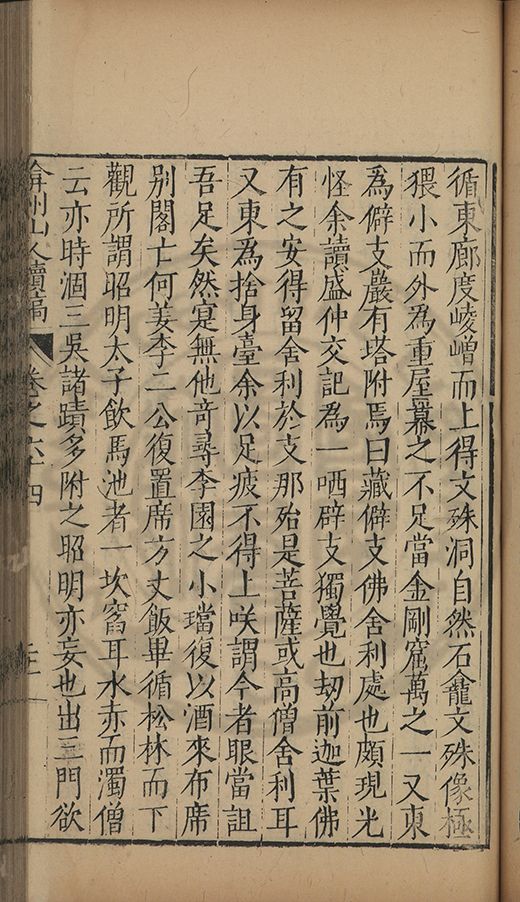 循東廊度崚嶒而上得文殊洞自然石龕文殊像極
猥小而外為重屋幕之不足當金剛窟萬之一又東
為僻支巖有塔附焉曰藏僻支佛舍利處也頗現光
怪余讀盛仲交記為一哂辟支獨覺也劫前迦葉佛
有之安得留舍利於支那殆是菩薩或高僧舍利耳
又東為捨身臺余以足疲不得上咲謂今者眼當詛
吾足矣然寔無他竒尋李園之小璫復以酒來布席
别閣亡何姜李二公復置席方丈飯畢循松林而下
觀所謂昭明太子飲馬池者一坎窞耳水赤而濁僧
云亦時涸三吳諸蹟多附之昭明亦妄也出三門欲
弇州山人續稿 卷之六十四